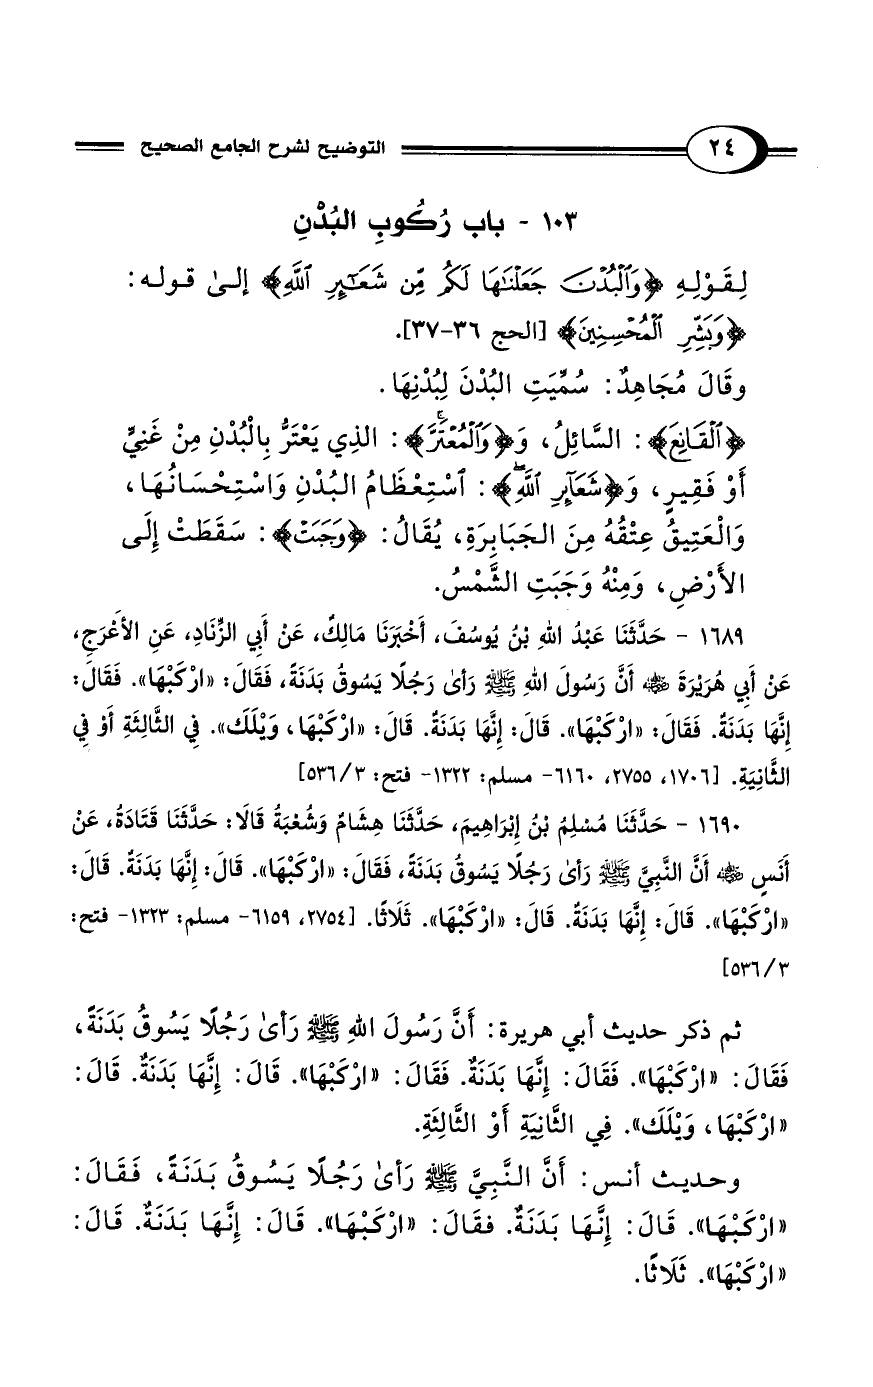 ٢٤ التوضيح لشرح الجامع الصحيح
١٠٣ - باب رُكُوبِ البُدْنِ
لِقَوْلِهِ ﴿وَٱلْبُدْنَ جَعَلْنَٰهَا لَكُم مِّن شَعَٰٓئِرِ ٱللَّهِ﴾ إلىٰ قوله:
﴿وَبَشِّرِ ٱلْمُحْسِنِينَ﴾ [الحج ٣٦-٣٧].
وقَالَ مُجَاهِدٌ: سُمِّيَتِ البُدْنَ لِبُدْنِهَا.
﴿ٱلْقَانِعَ﴾: السَّائِلُ، وَ﴿وَٱلْمُعْتَرَّۚ﴾: الذِي يَعْتَرُّ بِالْبُدْنِ مِنْ غَنِيٍّ
أَوْ فَقِيرٍ، وَ﴿شَعَٰٓئِرِ ٱللَّهِۖ﴾: ٱسْتِعْظَامُ البُدْنِ وَاسْتِحْسَانُهَا،
وَالْعَتِيقُ عِتْقُهُ مِنَ الجَبَابِرَةِ، يُقَالُ: ﴿وَجَبَتْ﴾: سَقَطَتْ إِلَى
الأَرْضِ، وَمِنْهُ وَجَبَتِ الشَّمْسُ.
١٦٨٩ - حَدَّثَنَا عَبْدُ اللهِ بْنُ يُوسُفَ، أَخْبَرَنَا مَالِكٌ، عَنْ أَبِي الزِّنَادِ، عَنِ الأَعْرَجِ،
عَنْ أَبِي هُرَيْرَةَ ﵁ أَنَّ رَسُولَ اللهِ ﷺ رَأىٰ رَجُلًا يَسُوقُ بَدَنَةً، فَقَالَ: «ارْكَبْهَا». فَقَالَ:
إِنَّهَا بَدَنَةٌ. فَقَالَ: «ارْكَبْهَا». قَالَ: إِنَّهَا بَدَنَةٌ. قَالَ: «ارْكَبْهَا، وَيْلَكَ». فِي الثَّالِثَةِ أَوْ فِي
الثَّانِيَةِ. [١٧٠٦، ٢٧٥٥، ٦١٦٠- مسلم: ١٣٢٢- فتح: ٥٣٦/٣]
١٦٩٠ - حَدَّثَنَا مُسْلِمُ بْنُ إِبْرَاهِيمَ، حَدَّثَنَا هِشَامٌ وَشُعْبَةُ قَالَا: حَدَّثَنَا قَتَادَةُ، عَنْ
أَنَسٍ ﵁ أَنَّ النَّبِيَّ ﷺ رَأىٰ رَجُلًا يَسُوقُ بَدَنَةً، فَقَالَ: «ارْكَبْهَا». قَالَ: إِنَّهَا بَدَنَةٌ. قَالَ:
«ارْكَبْهَا». قَالَ: إِنَّهَا بَدَنَةٌ. قَالَ: «ارْكَبْهَا». ثَلَاثًا. [٢٧٥٤، ٦١٥٩- مسلم: ١٣٢٣- فتح:
٥٣٦/٣]
ثم ذكر حديث أبي هريرة: أَنَّ رَسُولَ اللهِ ﷺ رَأىٰ رَجُلًا يَسُوقُ بَدَنَةً،
فَقَالَ: «ارْكَبْهَا». فَقَالَ: إِنَّهَا بَدَنَةٌ. فَقَالَ: «ارْكَبْهَا». قَالَ: إِنَّهَا بَدَنَةٌ. قَالَ:
«ارْكَبْهَا، وَيْلَكَ». فِي الثَّانِيَةِ أَوْ الثَّالِثَةِ.
وحديث أنس: أَنَّ النَّبِيَّ ﷺ رَأىٰ رَجُلًا يَسُوقُ بَدَنَةً، فَقَالَ:
«ارْكَبْهَا». قَالَ: إِنَّهَا بَدَنَةٌ. فقَالَ: «ارْكَبْهَا». قَالَ: إِنَّهَا بَدَنَةٌ. قَالَ:
«ارْكَبْهَا». ثَلَاثًا.